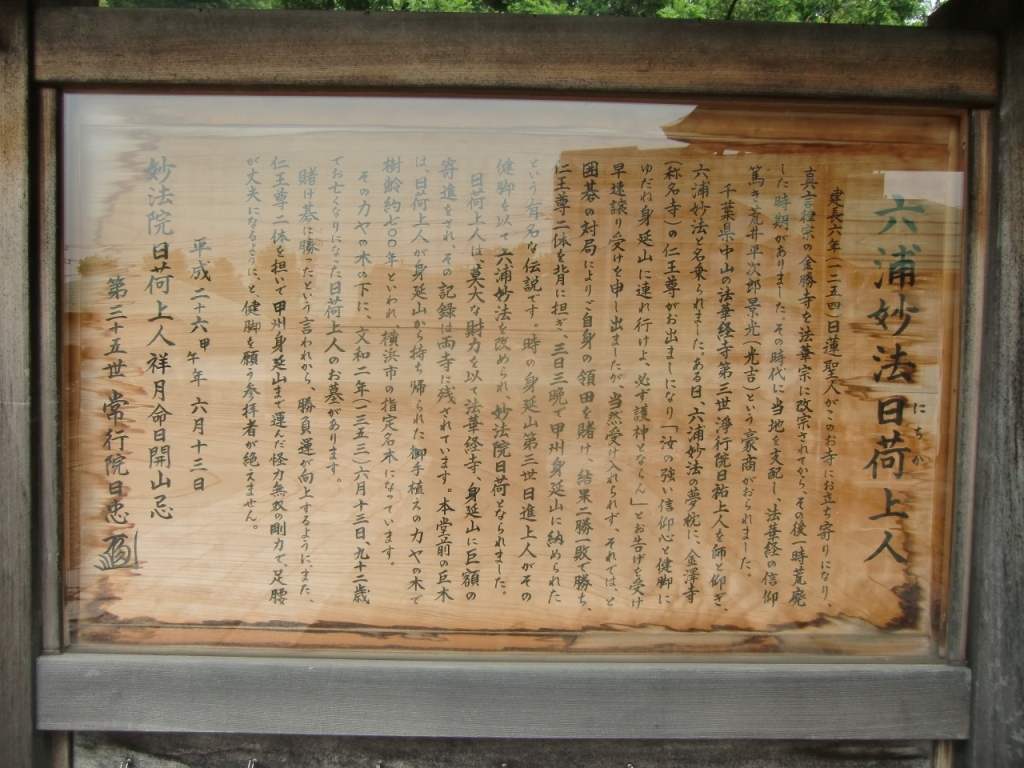 六浦妙法日荷上人
にちか
建長六年(一二五四)日蓮聖人がこのお寺にお立ち寄りになり、
真言律宗の金勝寺を法華宗に改宗されてから、その後一時荒廃
した時期がありました。その時代に当地を支配し、法華経の信仰
篤き荒井平次郎景光(光吉)という豪商がおられました。
千葉県中山の法華経寺第三世浄行院日祐上人を師と仰ぎ、
六浦妙法と名乗られました。ある日、六浦妙法の夢枕に、金澤寺
(称名寺)の仁王尊がお出ましになり「汝の強い信仰心と健脚に
ゆだね身延山に連れ行けよ、必ず護神とならん」とお告げを受け
早速譲り受けを申し出ましたが、当然受け入れられず、それでは、と
囲碁の対局によりご自身の領田を賭け、結果二勝一敗で勝ち、
仁王尊二体を背に担ぎ、三日三晩で甲州身延山に納められた
という有名な伝説です。時の身延山第三世日進上人がその
健脚を以て六浦妙法を改められ、妙法院日荷となられました。
日荷上人は、莫大な財力を以て法華経寺、身延山に巨額の
寄進をされ、その記録は両寺に残されています。本堂前の巨木
は、日荷上人が身延山から持ち帰られた御手植えのカヤの木で
樹齢約七〇〇年といわれ、横浜市の指定名木になっています。
そのカヤの木の下に、文和二年(一三五三)六月十三日、九十二歳
でお亡くなりになった日荷上人のお墓があります。
賭け碁に勝ったという言われから、勝負運が向上するように、また、
仁王尊二体を担いで甲州身延山まで運んだ怪力無双の剛力で、足腰
が丈夫になるように、と健脚を願う参拝者が絶えません。
平成二十六甲午年 六月十三日
妙法院日荷上人祥月命日開山忌
第三十五世 常行院日忠